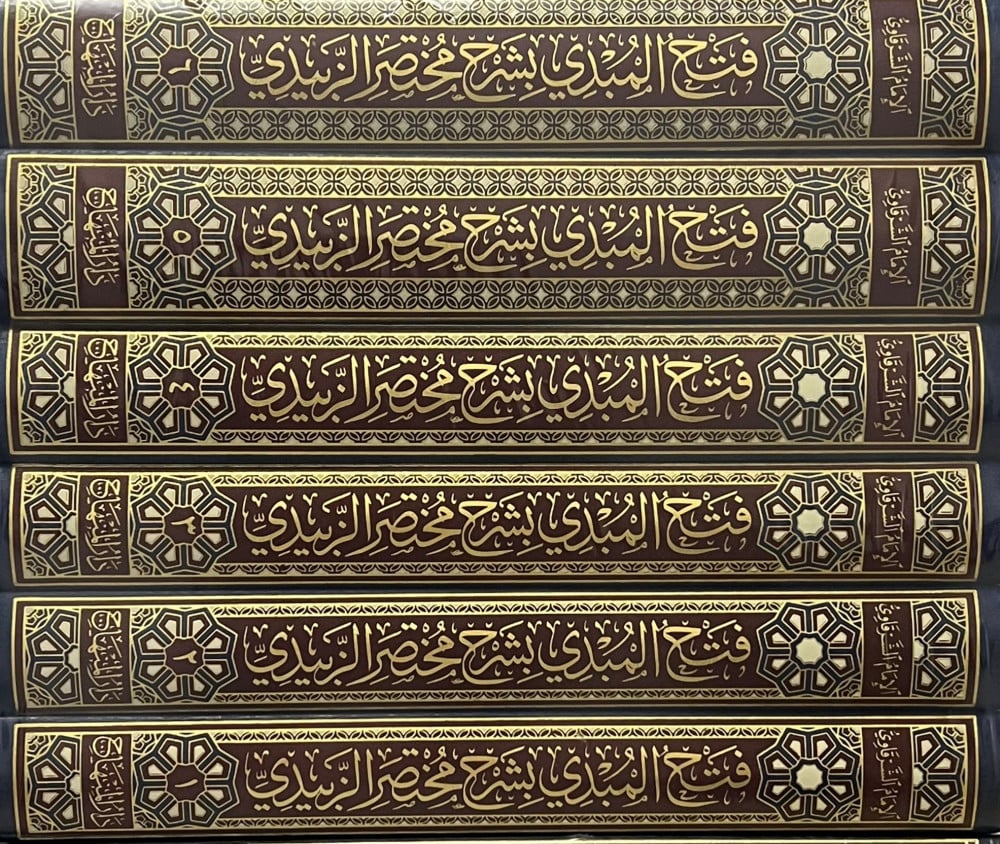 الإمام الشرقاوي فتح المبدي بشرح مختصر الزبيدي ٦ دار المنهاج
الإمام الشرقاوي فتح المبدي بشرح مختصر الزبيدي ٥ دار المنهاج
الإمام الشرقاوي فتح المبدي بشرح مختصر الزبيدي ٤ دار المنهاج
الإمام الشرقاوي فتح المبدي بشرح مختصر الزبيدي ٣ دار المنهاج
الإمام الشرقاوي فتح المبدي بشرح مختصر الزبيدي ٢ دار المنهاج
الإمام الشرقاوي فتح المبدي بشرح مختصر الزبيدي ١ دار المنهاج